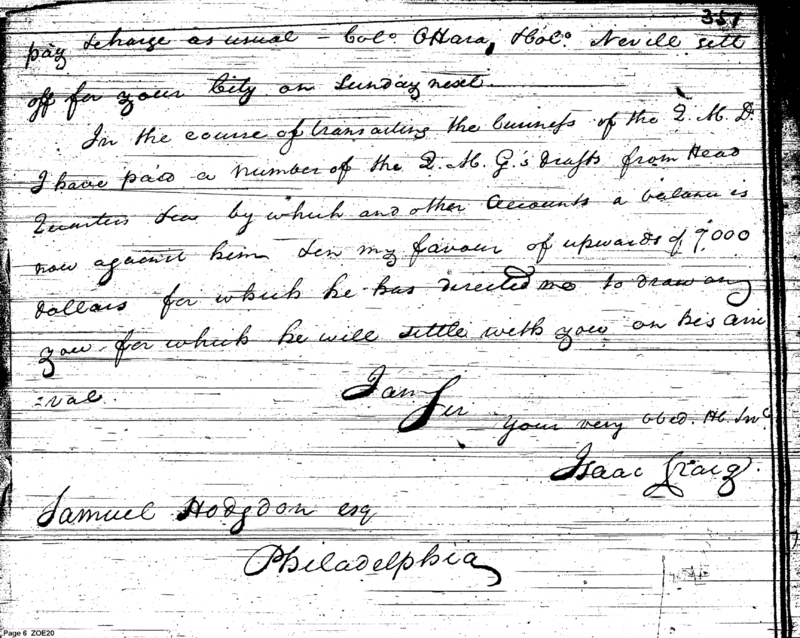 351
pay &charge as usual – Colo. OHara, &Colo. Nevill sett
off for your City on Sunday next.
In the course of transacting the business of the Q. M. D.
I have paid a number of the Q. M. G's drafts from Head
Quarters &ca by which and other Accounts a balance is
now against him &in my favour of upwards of 7000
dollars for which he has directed me to draw on
you for which he will settle with you on his arri
=val.
I am Sir
your very obed. H. Svt.
Isaac Craig.
Samuel Hodgdon esq
Philadelphia
Page 6 ZOE20